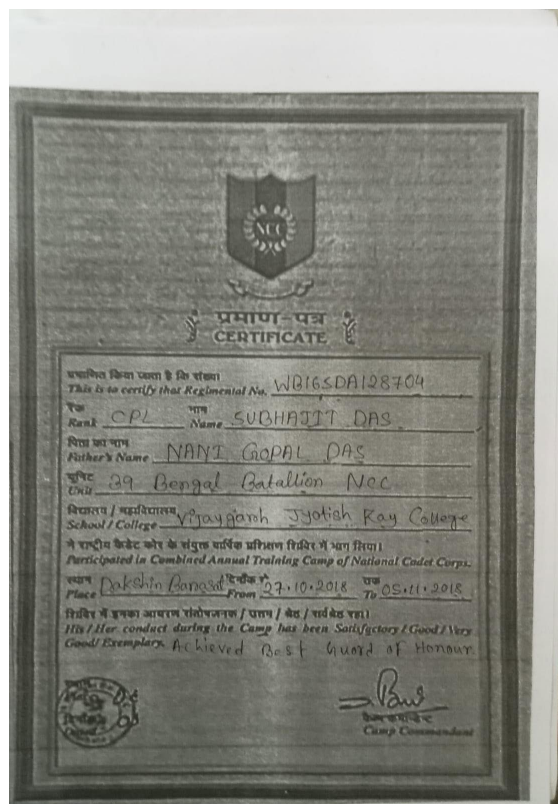 NCC
प्रमाण-पत्र
CERTIFICATE
प्रमाणित किया जाता है कि संख्या
This is to certify that Regimental No. WB16SDA128704
रैंक नाम
Rank CPL Name SUBHAJIT DAS
पिता का नाम
Father's Name NANI GOPAL DAS
यूनिट
Unit 39 Bengal Batallion NCC
विद्यालय / महाविद्यालय
School / College Vijaygarh Jyotish Ray College
ने राष्ट्रीय कैडेट कोर के संयुक्त वार्षिक प्रशिक्षण शिविर में भाग लिया।
Participated in Combined Annual Training Camp of National Cadet Corps.
स्थान दिनाँक से तक
Place Dakshin From 27.10.2018 To 05.11.2018
शिविर में इनका आचरण संतोषजनक / उत्तम / श्रेष्ठ / सर्वश्रेष्ठ रहा।
His / Her conduct during the Camp has been Satisfactory / Good / Very
Good / Exemplary. Achieved Best Guard of Honour
कैम्प कमान्डेन्ट
Camp Commandant